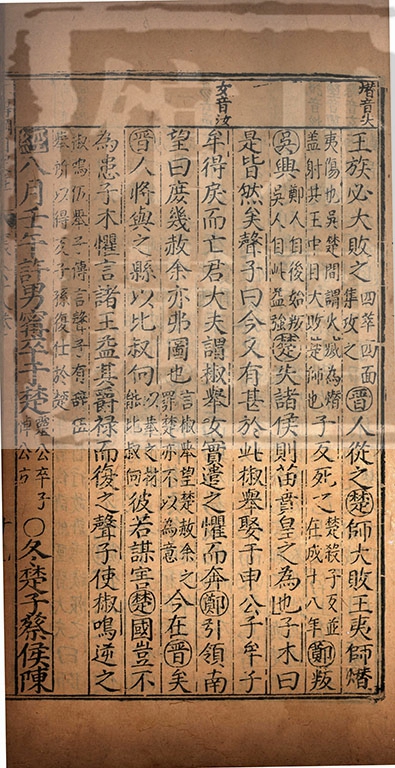 熸音尖
女音汝
王族必大敗之四萃四面集攻之晉人從之楚師大敗王夷師熸
夷傷也吳楚間謂火滅為熸蓋射其王中目大敗楚師也子反死之楚殺子反並在成十八年鄭叛
吳興鄭人自後始叛吳人自此益強楚失諸侯則苗賁皇之為也子木曰
是皆然矣聲子曰今又有甚於此椒舉娶于申公子牟子
牟得戾而亡君大夫謂椒舉女實遣之懼而奔鄭引領南
望曰庶幾赦余亦弗圖也言椒舉望楚赦余之罪楚亦不以為意今在晉矣
晉人將與之縣以比叔向以舉之材能比叔向彼若謀害楚國豈不
為患子木懼言諸王益其爵祿而復之聲子使椒鳴逆之
椒鳴伍舉子傳言聲子有辭伍舉所以得反子孫復仕於楚
經八月壬午許男甯卒于楚靈公卒子悼公立○冬楚子蔡侯陳